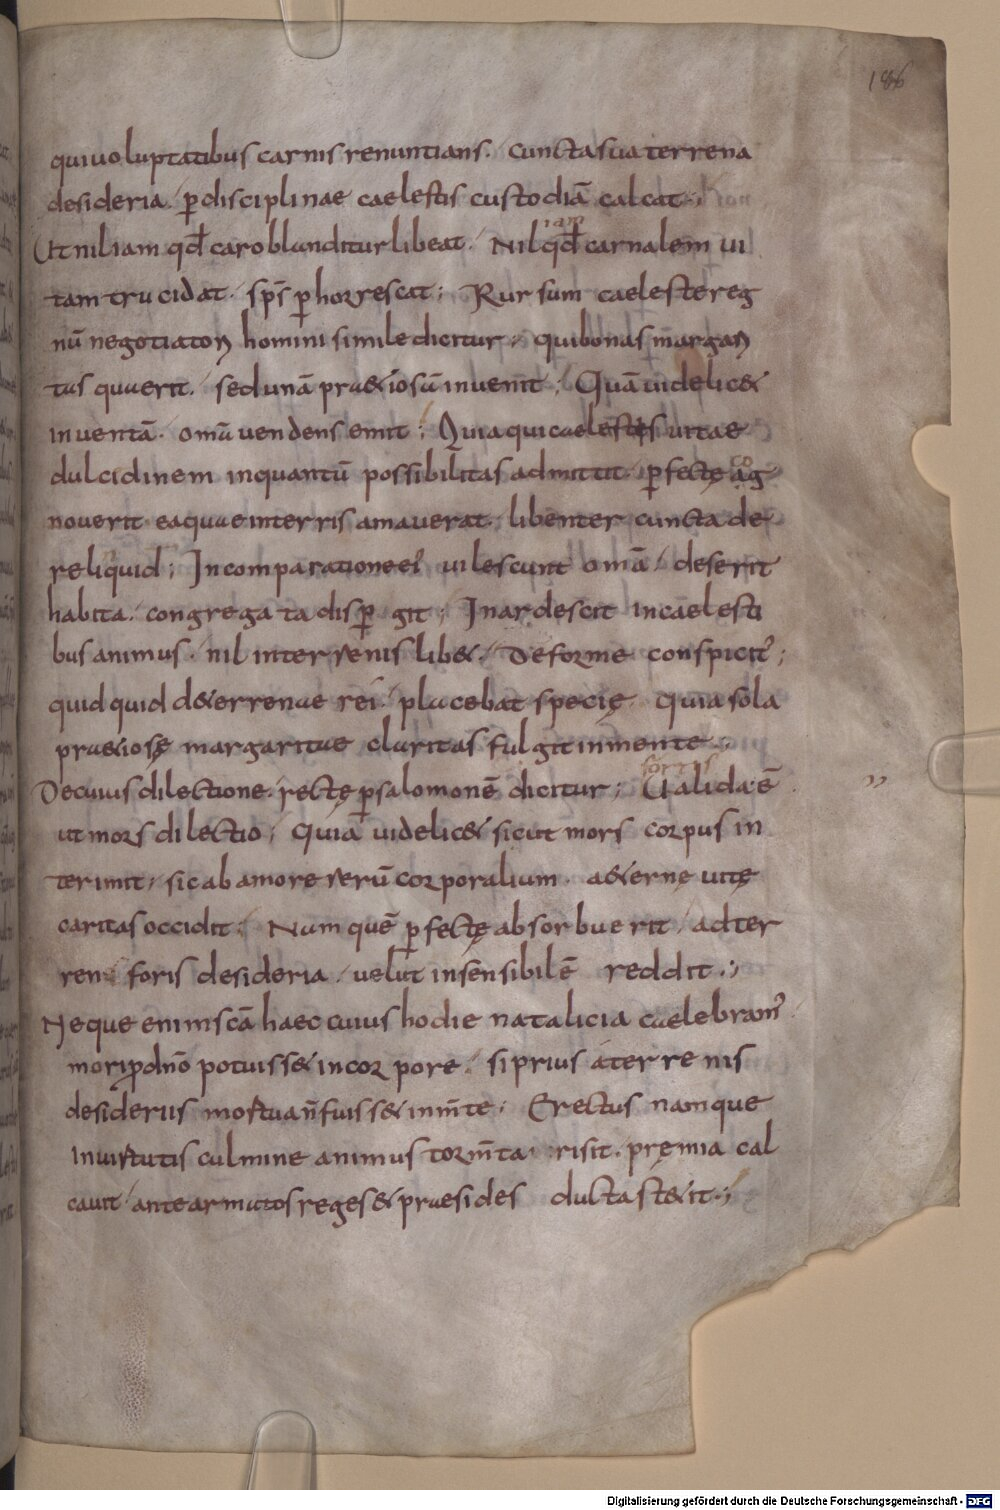 186
qui uoluptatibus carnis renuntians. cuncta sua terrena
desideria. p̱ disciplinae caelestis custodiā calcat.;
Ut nil iam qđ caro blanditur libeat. Nil qđ carnalem ui
iam
tam trucidat. sps̄ p̱horrescat; Rursum caeleste reg
nū negotiatori homini simile dicitur. qui bonas margari
tas quaerit. sed unā pr&iosā inuenit; Quā uidelic&
inuentā. om̄a uendens emit; Quia qui caelestis uitae
dulcidinem inquantū possibilitas admittit. p̱fectę ag
co
nouerit ea quae in terris amauerat. libenter cuncta de
reliquid; In comparatione ei' uilescunt om̄a. deserit
habita. congregata disp̱git; Inardescit in caelesti
bus animus. nil in terrenis lib&. Deforme conspicit';
quid quid d&errenae rei placebat specię. Quia sola
pra&iosę margaritae claritas fulgit in mente.;
De cuius dilectione. rectę p̱ salomonē dicitur; Ualida ē
fortis
ut mors dilectio; Quia uidelic& sicut mors corpus in
terimit. sic ab amore rerū corporalium. a&ernę uitę
caritas occidit; Nam quē p̱fectę absorbuerit. ad ter
ren foris desideria. uelut insensibilē reddit.;
Neque enim sc̄a haec cuius hodie natalicia caelebram'.
mori ꝓ dn̄o potuiss& in corpore. si prius a terrenis
desideriis mortua n̄ fuiss& in m̄te. Erectus namque
in uirtutis culmine animus torm̄ta risit. pręmia cal
cauit. ante armatos reges & praesides ducta st&it.;
Digitalisierung gefördert durch die Deutsche Forschungsgemeinschaft - DFG